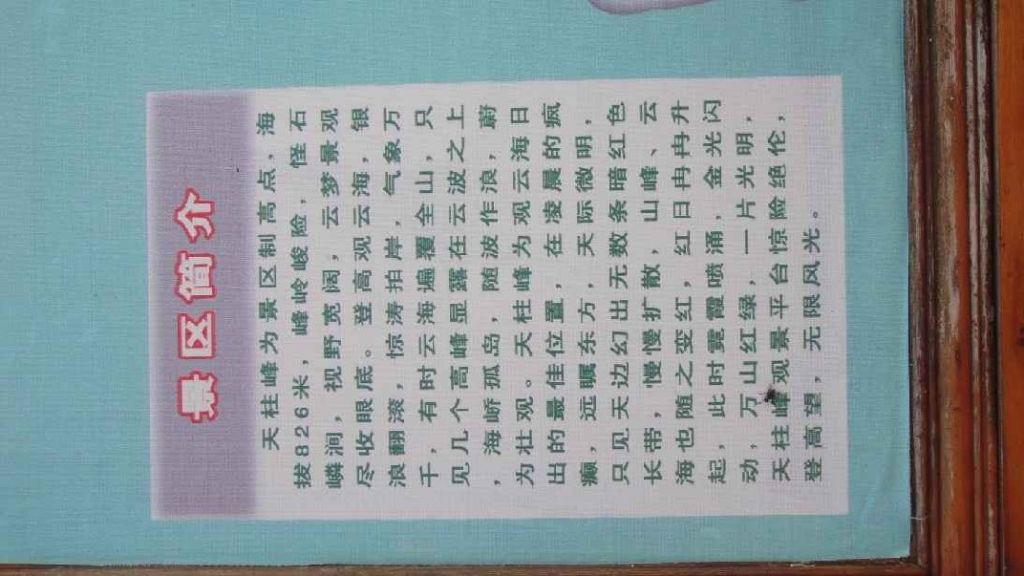 景区简介
天柱峰为景区制高点，海
拔826米，峰岭峻险，怪石
嶙涧，视野宽阔，云梦景观
尽收眼底。登高观云海，银
浪翻滚，惊涛拍岸，气象万
千，有时云海遍覆全山，只
见几个高峰显露在云波之上
，海峤孤岛，随波作浪，蔚
为壮观。天柱峰为观云海日
出的最佳位置，在凌晨的疯
癫，远瞩东方，天际微明，
只见天边幻出无数条暗红色
长带，慢慢扩散，山峰、云
海也随之变红，红日冉冉升
起，此时霓霞喷涌，金光闪
动，万山红绿，一片光明，
天柱峰观景平台惊险绝伦，
登高望，无限风光。